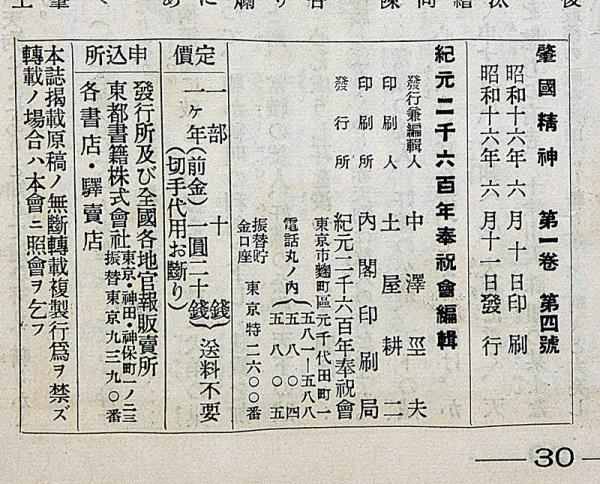 肇國精神　第一卷　第四號
昭和十六年六月十日印刷
昭和十六年六月十一日發行
紀元二千六百年奉祝會編輯
發行兼編輯人　中澤巠夫
印刷人　土屋耕二
印刷所　內閣印刷局
發行所　紀元二千六百年奉祝會
東京市麴町區元千代田町一
電話丸ノ內
五八一・五八八
五八〇四
五八〇五
振替貯金口座　東京特二六〇〇番
定價
一部　十錢
一ケ年(前金)　一圓二十錢
送料不要
(切手代用お斷り)
申込所
發行所及び全國各地官報販賣所
東都書籍株式會社
東京・神田・神保町一ノ二三
振替東京九三九〇番
各書店・驛賣店
本誌揭載原稿ノ無斷轉載複製行爲ヲ禁ズ
轉載ノ場合ハ本會ニ照會ヲ乞フ
30